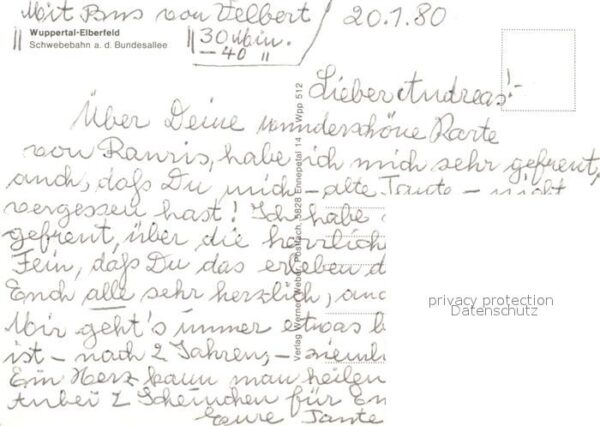 Mit Bus von Velbert
20.1.80
30 Min.
- 40 "
Wuppertal-Elberfeld
Schwebebahn a. d. Bundesallee
Lieber Andreas!
Über Deine wunderschöne Karte
von Rauris, habe ich mich sehr gefreut,
auch, daß Du mich - alte Tante - nicht
vergessen hast! Ich habe
gefreut, über die herrlich
Fein, daß Du das erleben d
Euch alle sehr herzlich, and
Mir geht's immer etwas b
ist - nach 2 Jahren, - ziemli
Ein Herz kann man heilen
Anbei 2 Scheinchen für Eu
Eure Tante
Verlag Werner Weber, Postfach, 5828 Ennepetal 14 Wpp 512
privacy protection
Datenschutz